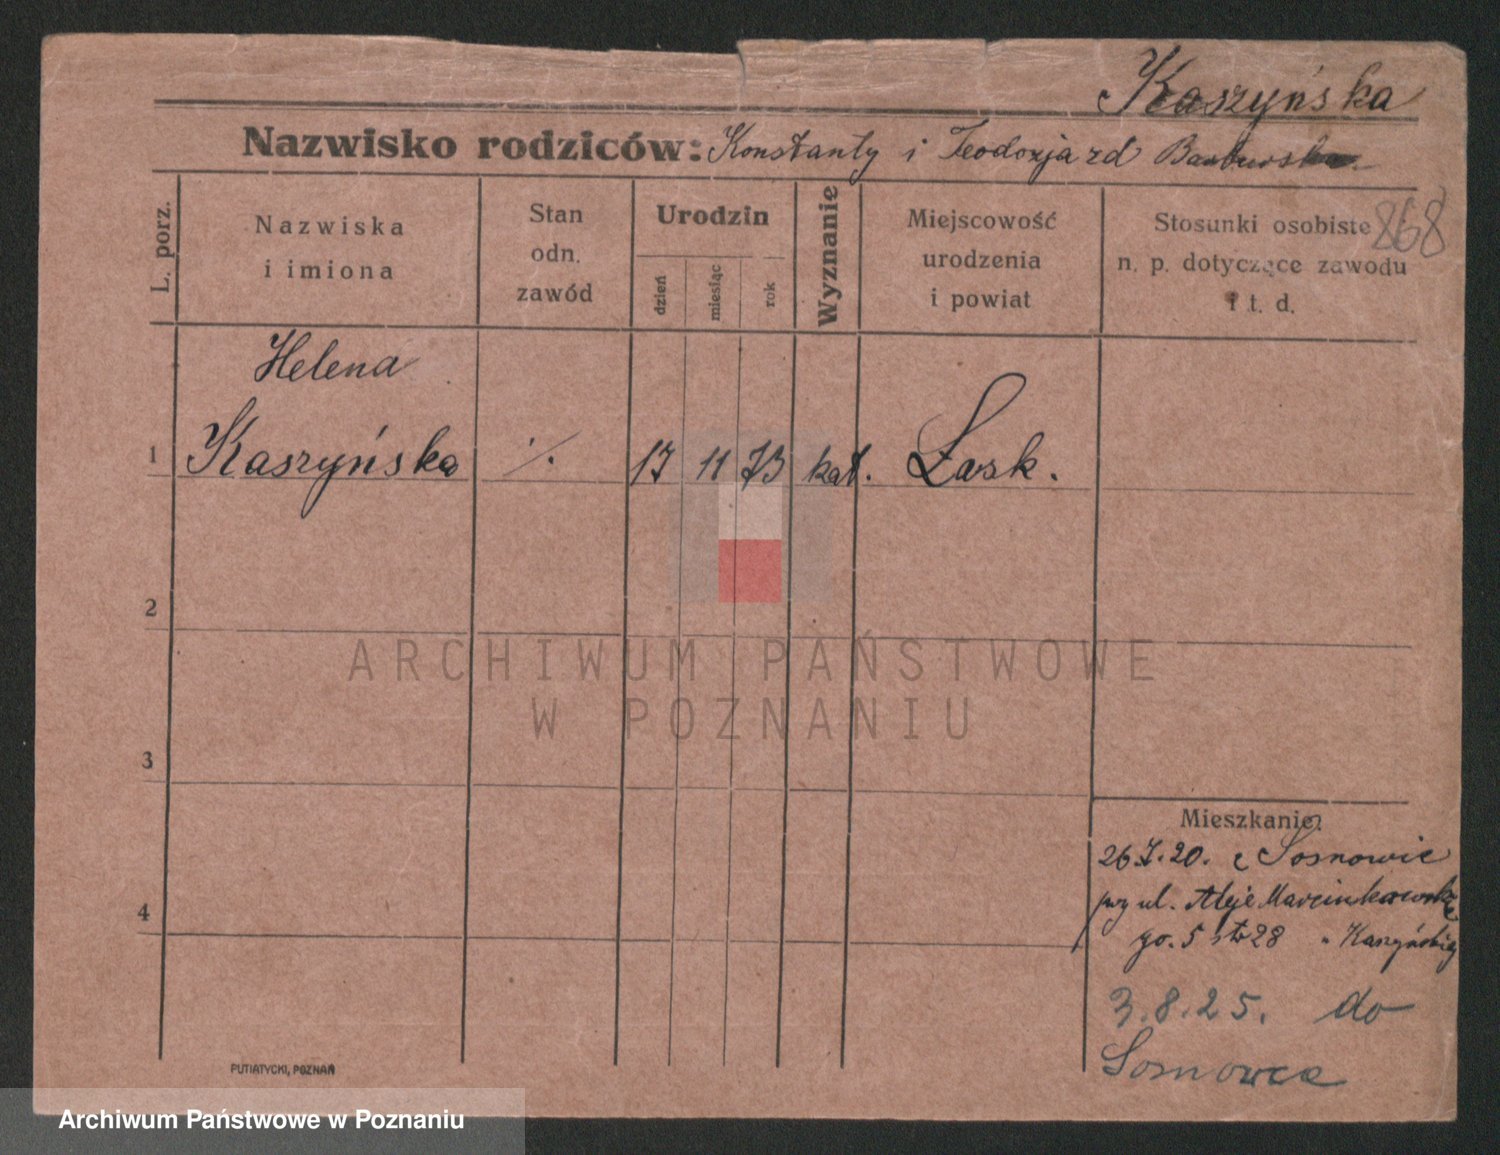 Kaszyńska
Nazwisko rodziców: Konstanty i Teodozja zd
868
L. porz.
Nazwiska
i imiona
Stan
odn.
zawód
Urodzin
dzień
miesiąc
rok
Wyznanie
Miejscowość
urodzenia
i powiat
Stosunki osobiste
n. p. dotyczące zawodu
i t. d.
Helena
1 Kaszyńska ./. 17 11 73 kat. Łask.
2
ARCHIWUM PAŃSTWOWE
W POZNANIU
3
Mieszkanie:
26.7.20. z Sosnowic
przy ul. Aleje Marcinkowskie
go. 5 28 Kaszyńskiej
4
3.8.25. do
Sosnowca
PUTIATYCKI, POZNAŃ
Archiwum Państwowe w Poznaniu